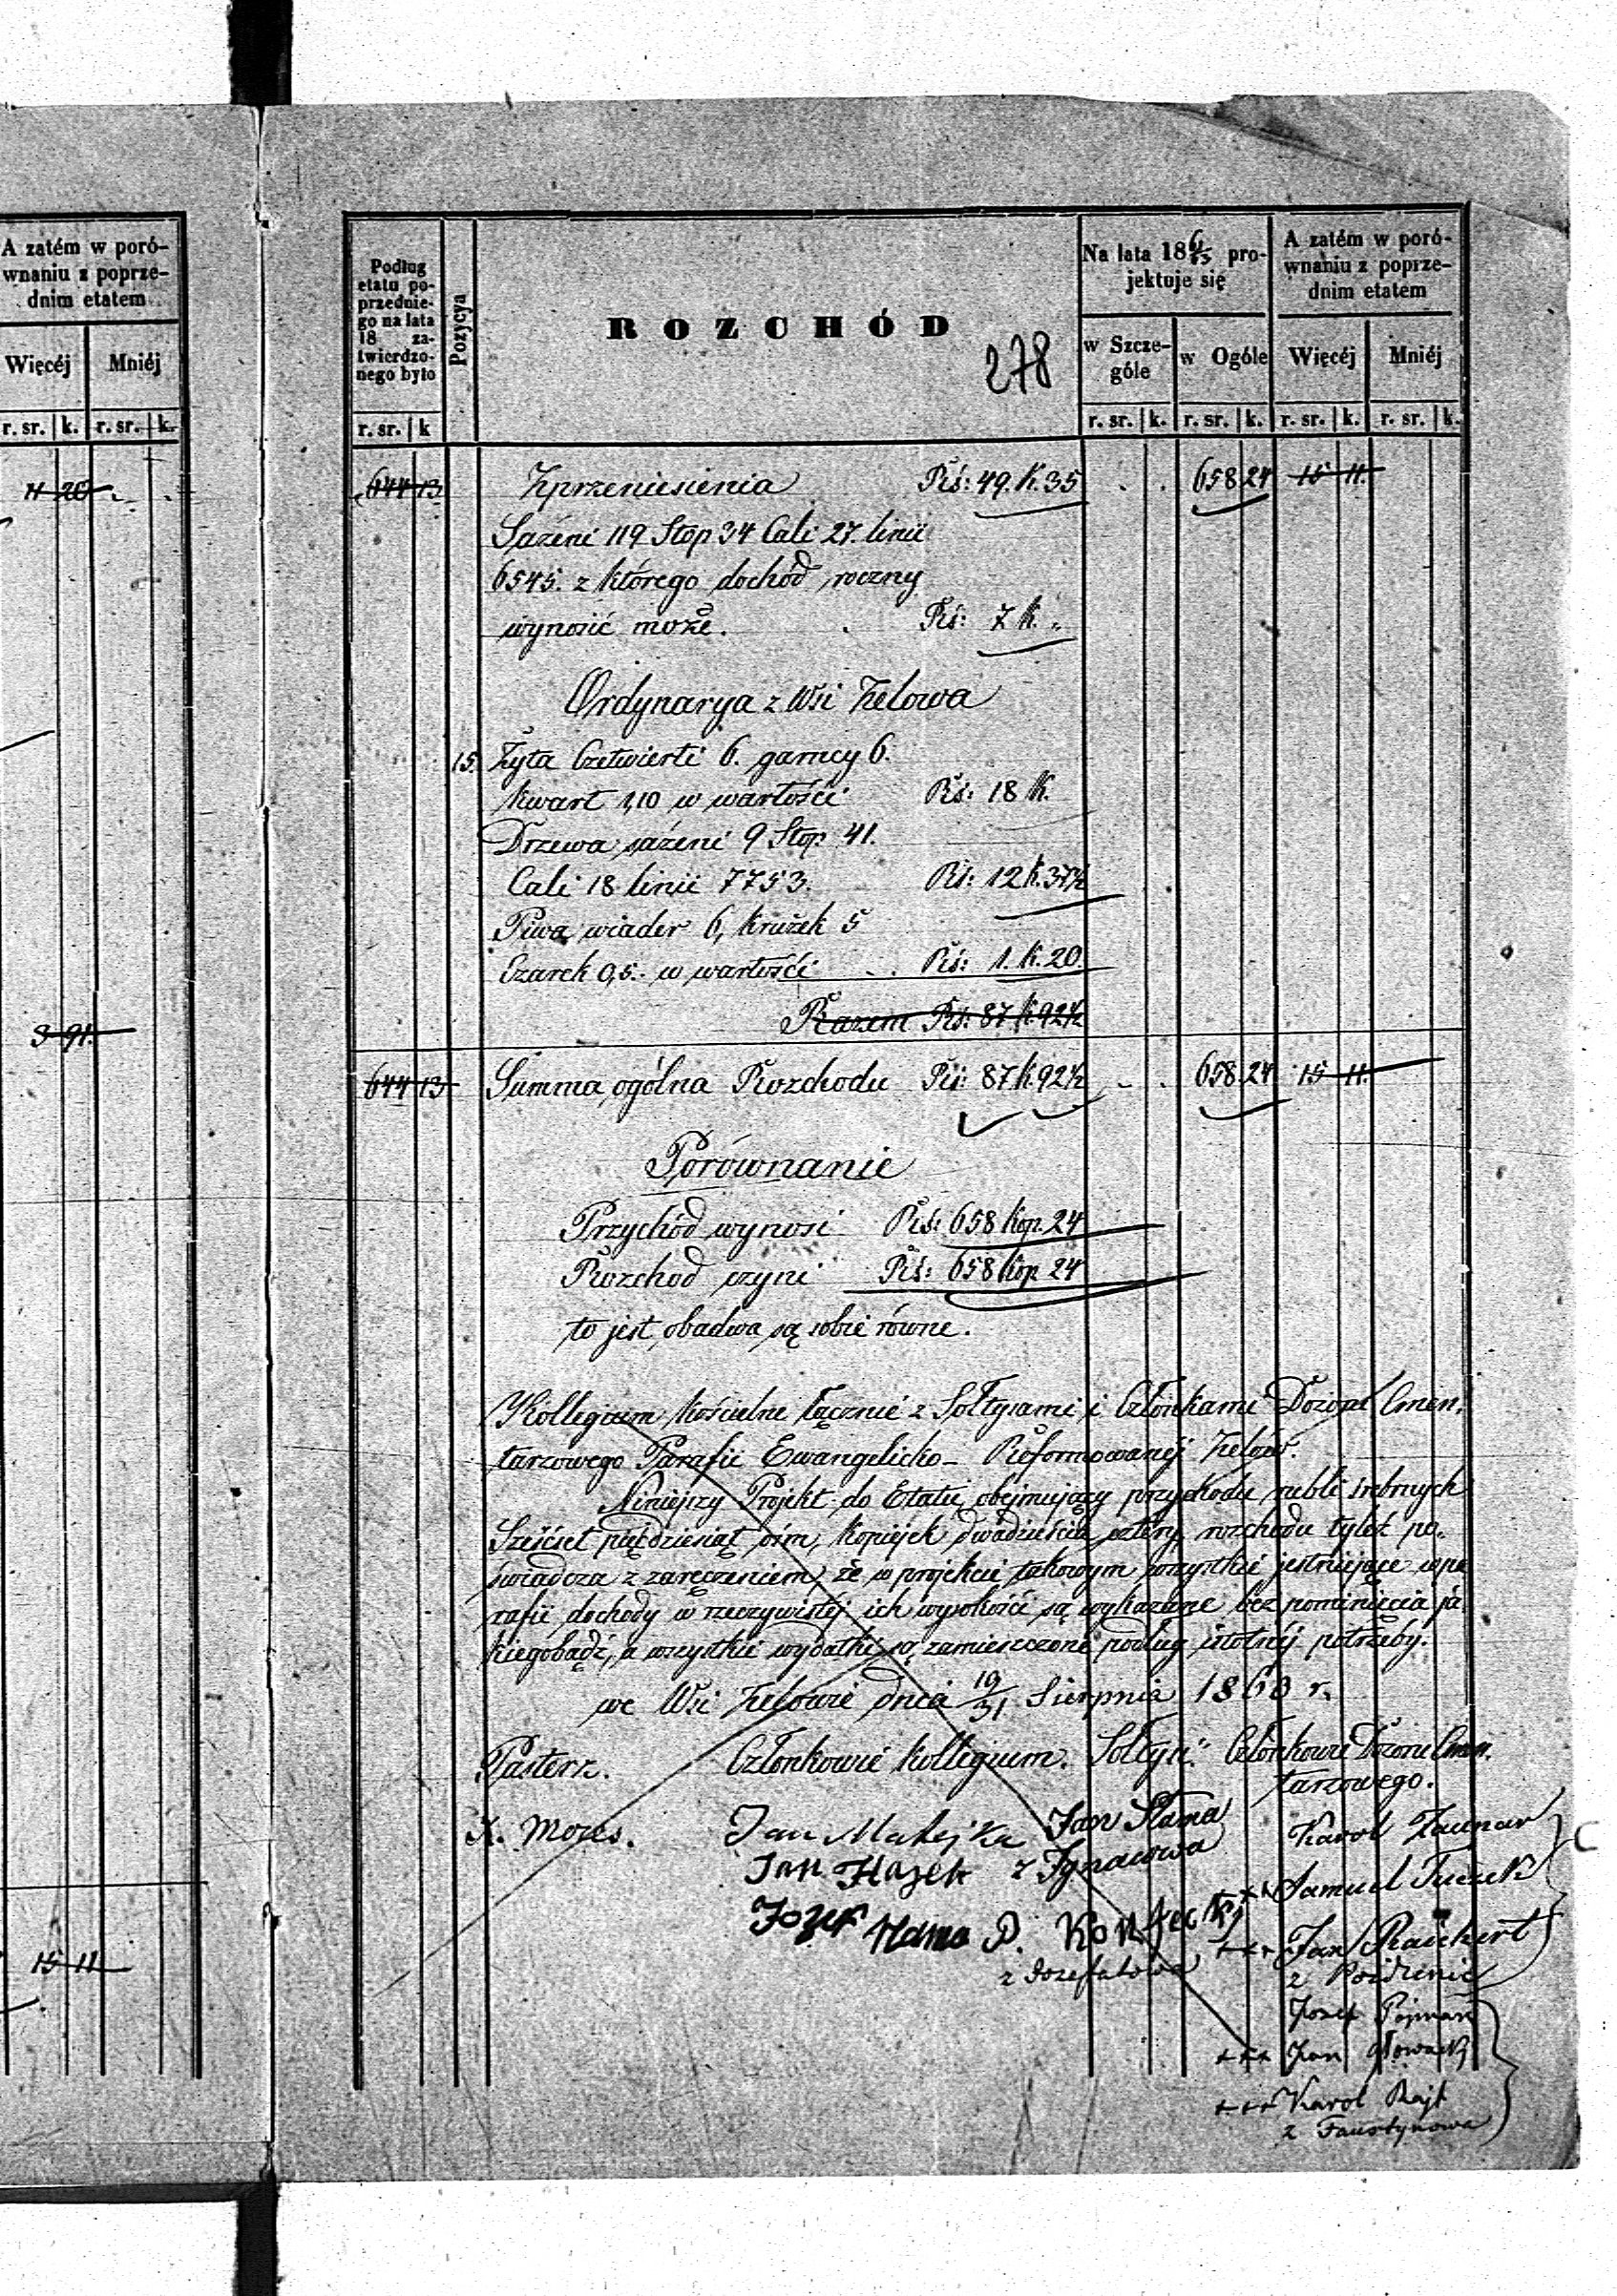 A zatém w poró-
wnaniu z poprze-
dnim etatem
Więcéj Mniéj
r. sr. k. r. sr. k.
11 20
3 91.
15 11
Podług
etatu po-
przednie-
go na lata
18 za-
twierdzo-
nego było
r. sr. k
Pozycya
ROZCHÓD
278
Na lata 186 pro-
jektuje się
w Szcze-
góle
w Ogóle
r. sr. k. r. sr. k.
A zatém w poró-
wnaniu z poprze-
dnim etatem
Więcéj Mniéj
r. sr. k. r. sr. k.
644 13 Zprzeniesienia Rś: 49. K. 35 658 24 15 11.
Sażeni 119 Stop 34 Cali 27. linii
6545. z którego dochód roczny
wynosić może. Rś: 7 K. „
Ordynarya z Wsi Zelowa
15. Żyta Czetwierti 6. garncy 6.
kwart 1,10 w wartości Rś: 18 K.
Drzewa sażeni 9 Stop 41.
Cali 18 linii 7753. Rś: 12 K. 37½
Piwa wiader 6, kružek 5
Czarek 0,5. w wartości Rś: 1. K. 20.
Razem Rś: 87 K. 92½
644 13 Summa ogólna Rozchodu Rś: 87 K. 92½ 658 24 15 11.
Porównanie
Przychód wynosi Rś: 658 Kop. 24
Rozchod czyni Rś: 658 Kop 24
to jest obadwa są sobie równe.
Kollegium Kościelne łącznie z Sołtysami i Członkami Dozoru Cmen.
tarzowego Parafii Ewangelicko-Reformowanéj Zelów.
Niniejszy Projekt do Etatu obejmujący przychodu rubli srebrnych
Sześćset pięćdziesiąt ośm, kopiejek dwadzieścia cztery, rozchodu tyleż po-
świadcza z zaręczeniem, że w projekcie takowym wszystkie jestniejące w pa
rafii dochody w rzeczywistéj ich wysokości są wykazane bez pominięcia ja
kiegobądź, a wszystkie wydatki są zamieszczone podług istotnéj potrzeby.
we Wsi Zelowie dnia 19/31 Sierpnia 1860 r.
Pasterz. Członkowie Kollegium. Sołtysi. Członkowie Dozoru Cmen.
tarzowego.
X. Mozes.
Jan Matejka
Jan Hajek
Jozef
Jan Słama
z Ignacowa
P.
z Jozefatowa
Karol
Samuel Tuczek
+++ Jan Raichert
z
Jozef
+++ Jan Głowacki
+++ Karol Rajt
z Faustynowa